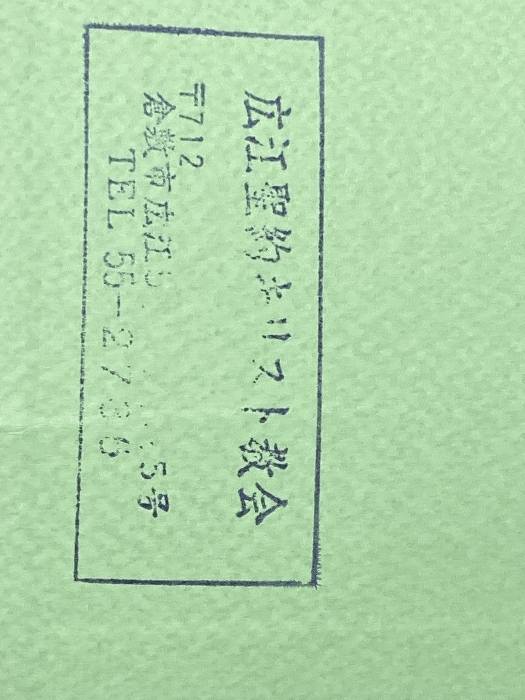 広江聖約キリスト教会
〒712
倉敷市広江 5号
TEL 55-27